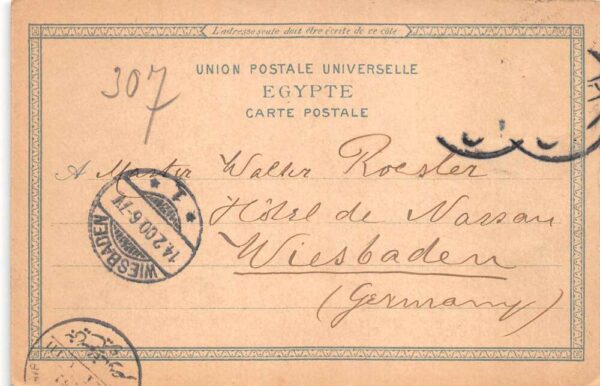 L'adresse seule doit être écrite de ce côté
307
UNION POSTALE UNIVERSELLE
EGYPTE
CARTE POSTALE
A Master Walter Roesler
Hôtel de Nassau
Wiesbaden
(Germany)
WIESBADEN
14.2.00.6-7V.
* 1. *